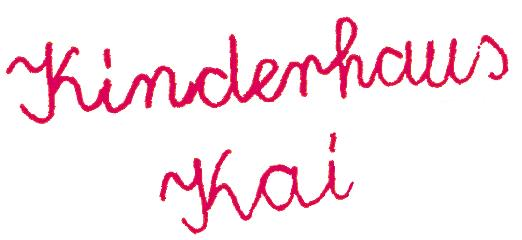 Kinderhaus
Kai